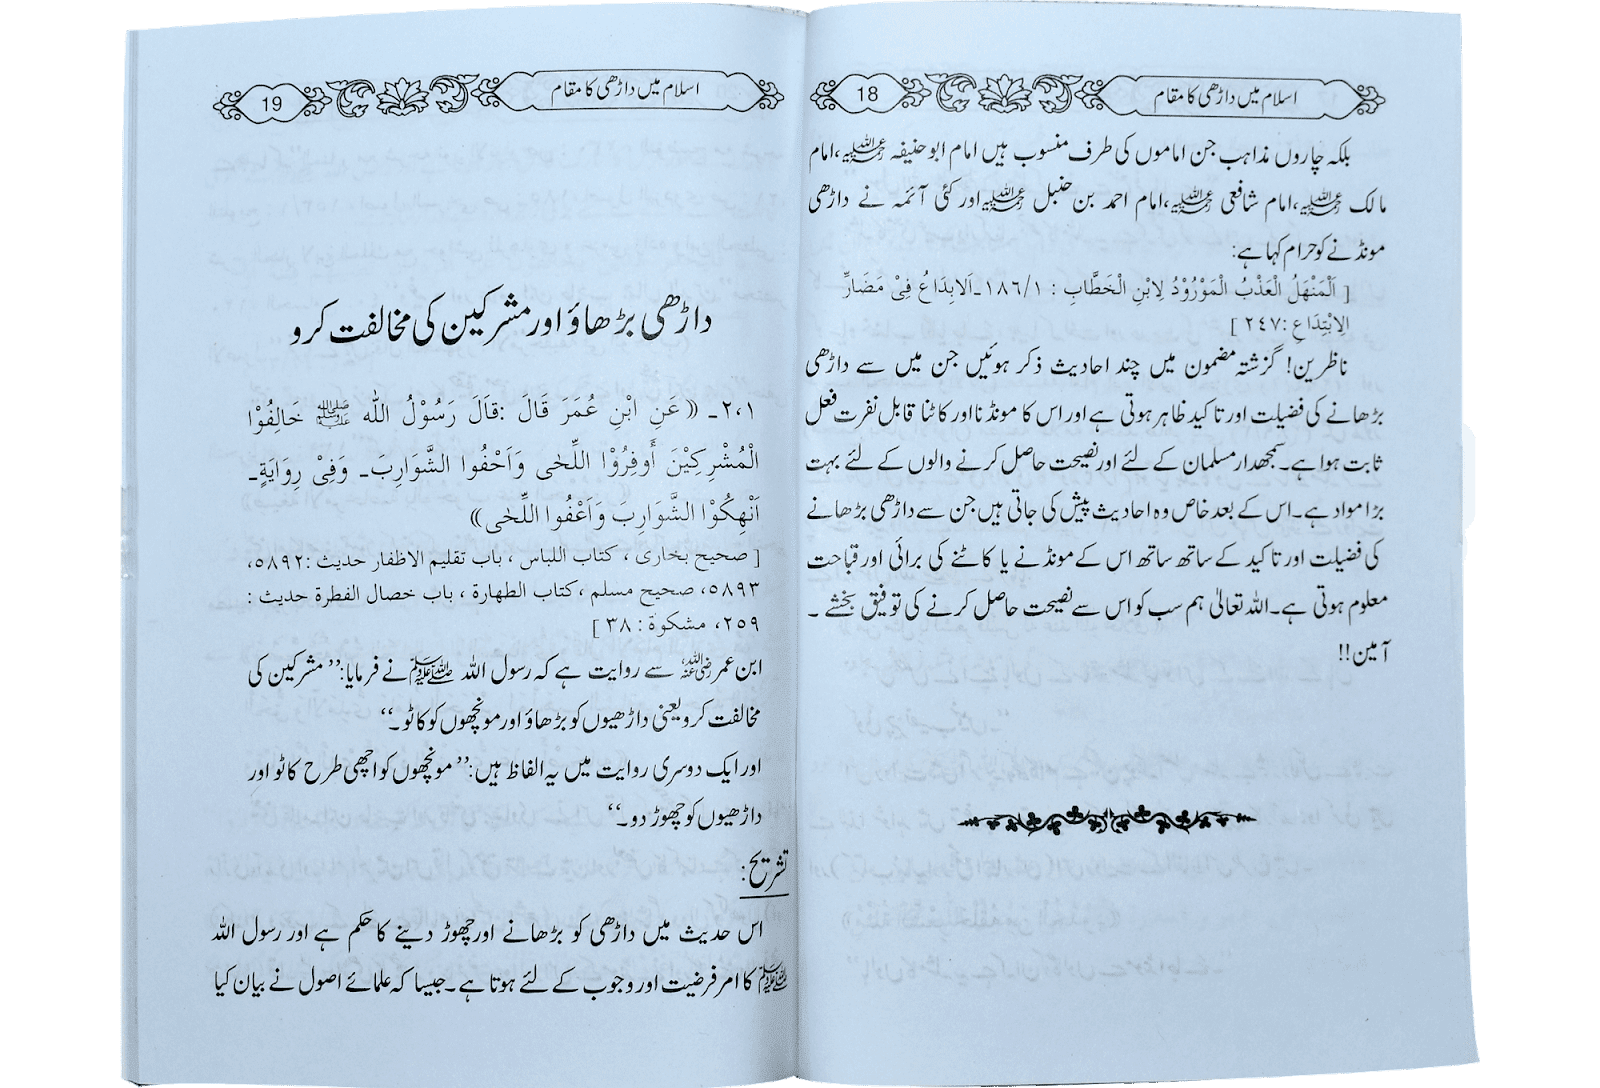 اسلام میں داڑھی کا مقام
18
بلکہ چاروں مذاہب جن اماموں کی طرف منسوب ہیں امام ابو حنیفہ رحمۃ اللہ علیہ، امام
مالک رحمۃ اللہ علیہ، امام شافعی رحمۃ اللہ علیہ، امام احمد بن حنبل رحمۃ اللہ علیہ اور کئی آئمہ نے داڑھی
مونڈنے کو حرام کہا ہے:
[ اَلْمَنْهَلُ الْعَذْبُ الْمَوْرُوْدُ لِابْنِ الْخَطَّابِ : ١٨٦/١۔اَلابِدَاعُ فِيْ مَضَارِّ
الِابْتِدَاعِ :٢٤٧ ]
ناظرین! گزشتہ مضمون میں چند احادیث ذکر ہوئیں جن میں سے داڑھی
بڑھانے کی فضیلت اور تاکید ظاہر ہوتی ہے اور اس کا مونڈنا اور کاٹنا قابل نفرت فعل
ثابت ہوا ہے۔سمجھدار مسلمان کے لئے اور نصیحت حاصل کرنے والوں کے لئے بہت
بڑا مواد ہے۔اس کے بعد خاص وہ احادیث پیش کی جاتی ہیں جن سے داڑھی بڑھانے
کی فضیلت اور تاکید کے ساتھ ساتھ اس کے مونڈنے یا کاٹنے کی برائی اور قباحت
معلوم ہوتی ہے۔اللہ تعالیٰ ہم سب کو اس سے نصیحت حاصل کرنے کی توفیق بخشے ۔
آمین!!
اسلام میں داڑھی کا مقام
19
داڑھی بڑھاؤ اور مشرکین کی مخالفت کرو
٢،١۔ ((عَنِ ابْنِ عُمَرَ قَالَ :قَالَ رَسُوْلُ اللّٰه ﷺ خَالِفُوْا
الْمُشْرِكِيْنَ أَوفِرُوْا اللِّحٰى وَاَحْفُوا الشَّوَارِبَ۔ وَفِيْ رِوَايَةٍ۔
اَنْهِكُوْا الشَّوَارِبَ وَاَعْفُوا اللِّحٰى))
[ صحيح بخارى ، كتاب اللباس ، باب تقليم الاظفار حديث :٥٨٩٢،
٥٨٩٣، صحيح مسلم ، كتاب الطهارة ، باب خصال الفطرة حديث :
٢٥٩، مشكوة : ٣٨ ]
ابن عمر رضی اللہ عنہ سے روایت ہے کہ رسول اللہ ﷺ نے فرمایا:’’ مشرکین کی
مخالفت کرو یعنی داڑھیوں کو بڑھاؤ اور مونچھوں کو کاٹو۔‘‘
اور ایک دوسری روایت میں یہ الفاظ ہیں:’’ مونچھوں کو اچھی طرح کاٹو اور
داڑھیوں کو چھوڑ دو۔‘‘
تشریح:
اس حدیث میں داڑھی کو بڑھانے اور چھوڑ دینے کا حکم ہے اور رسول اللہ
ﷺ کا امر فرضیت اور وجوب کے لئے ہوتا ہے۔جیسا کہ علمائے اصول نے بیان کیا